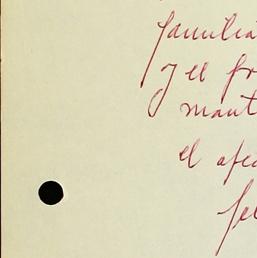 familia
y el fr
mant
el afec
fel